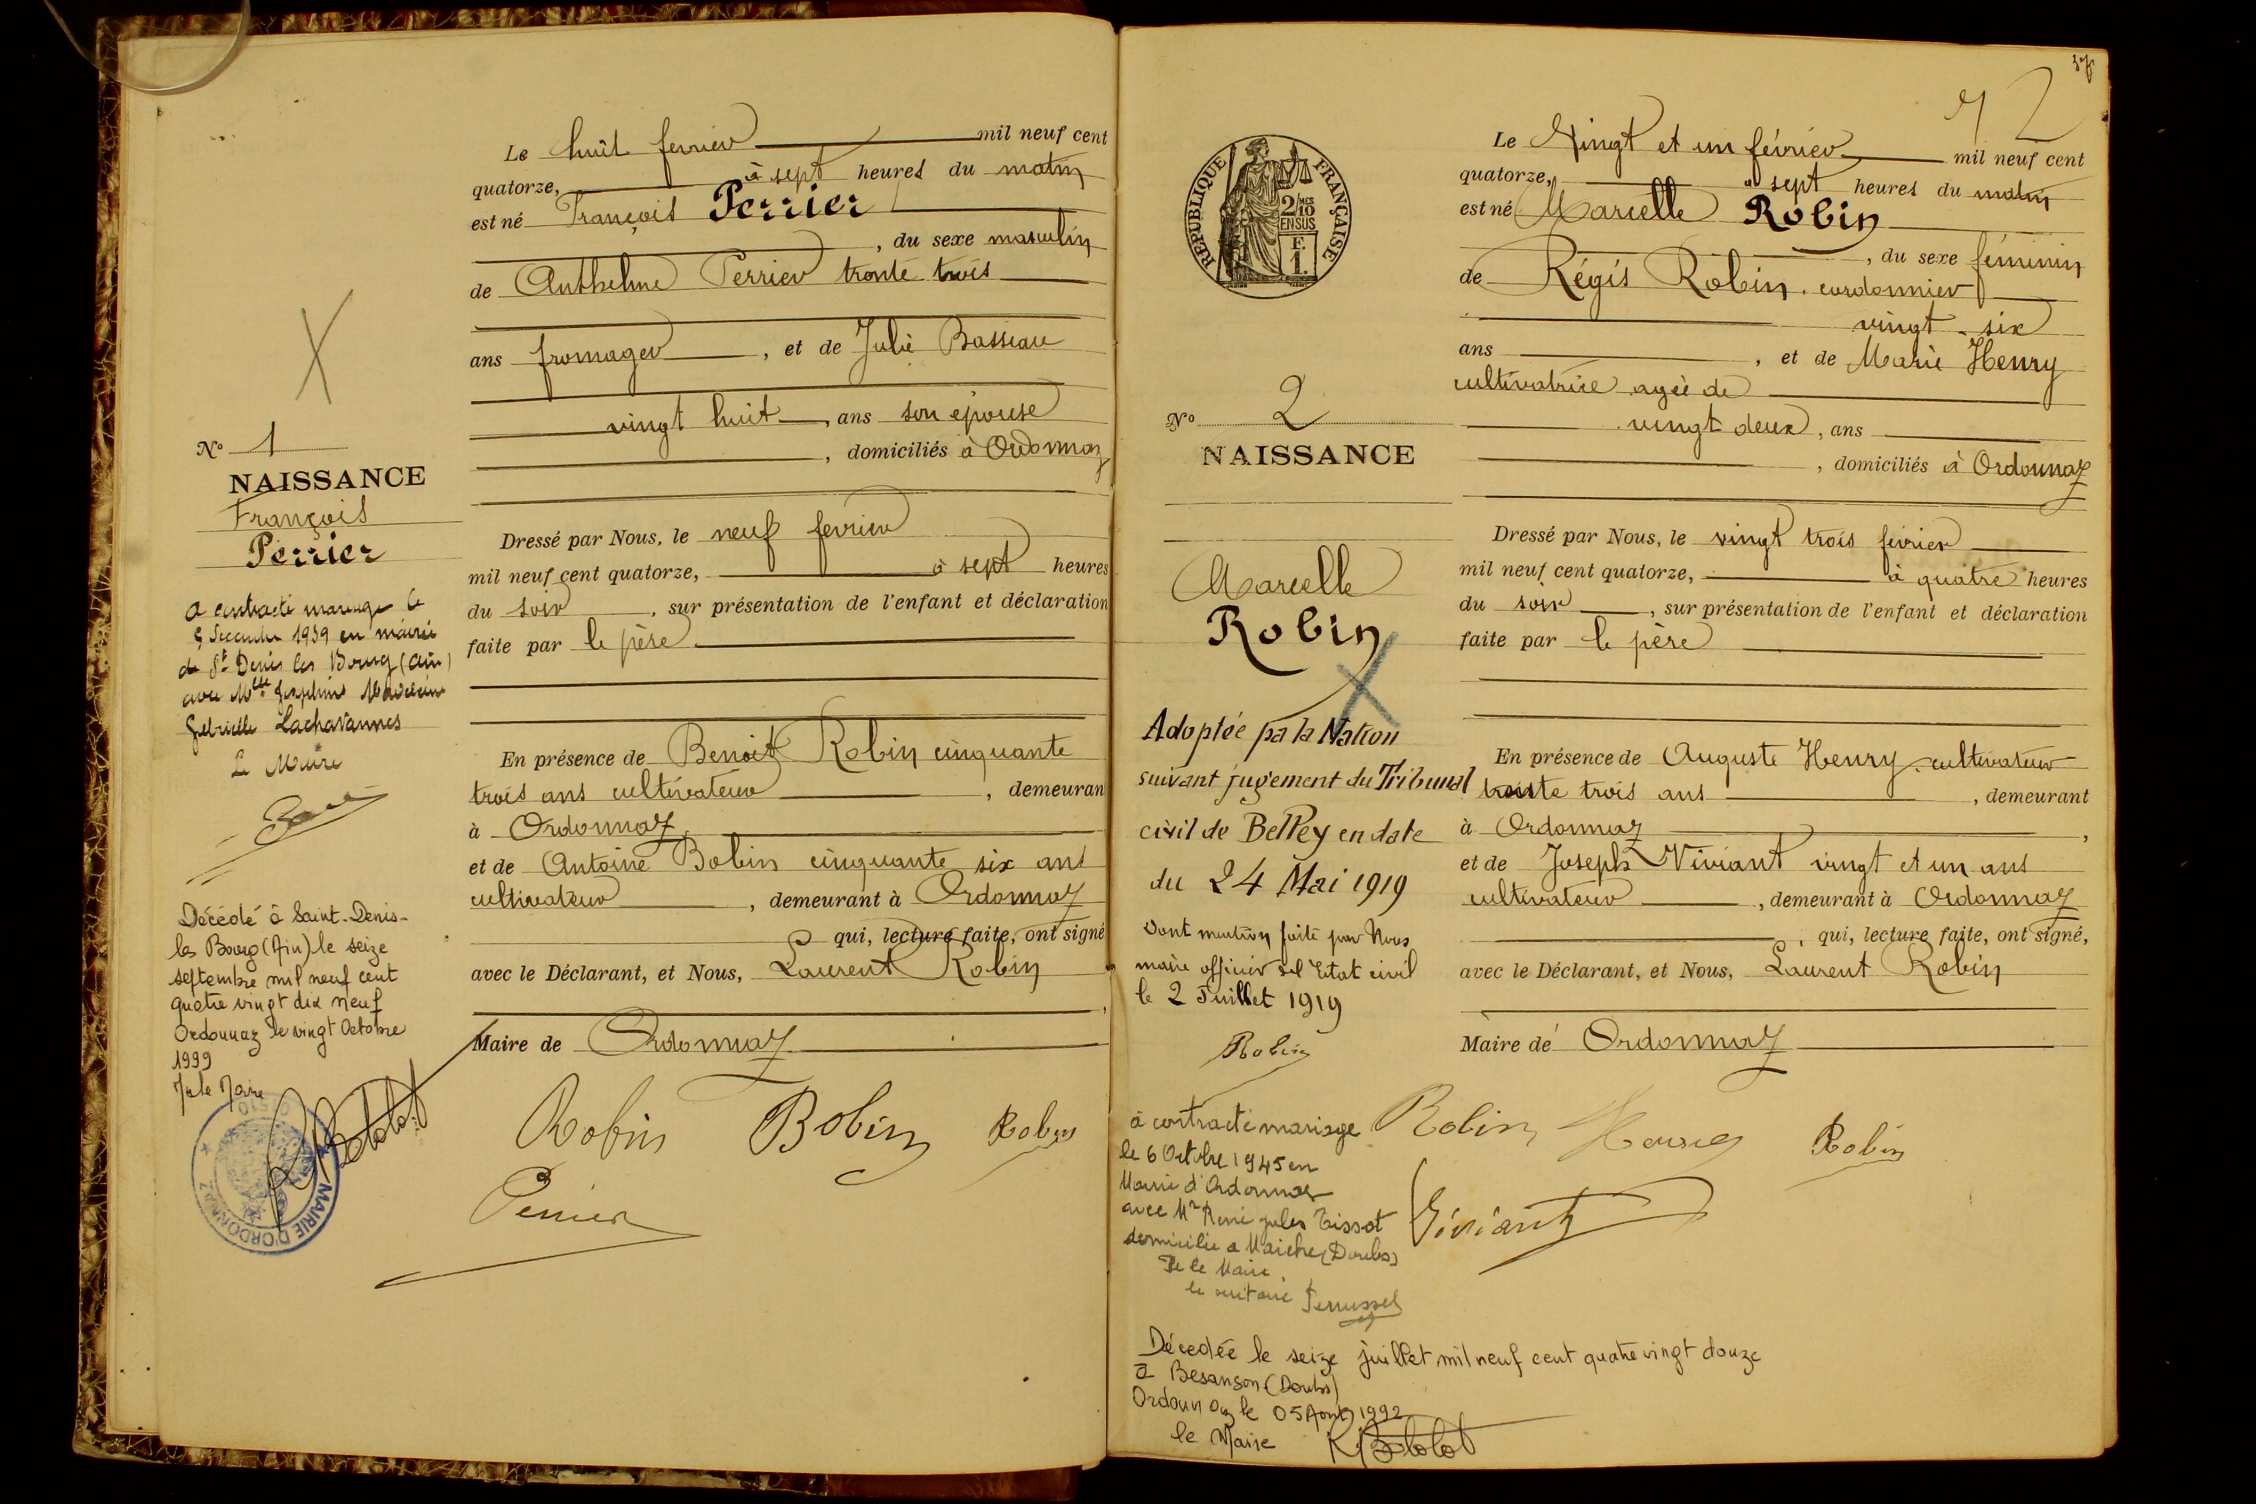 Le huit fevrier mil neuf cent
quatorze, à sept heures du matin
est né François Perrier
, du sexe masculin
de Anthelme Perrier trente trois
ans fromager, et de Julie Basseau
vingt huit, ans son épouse
, domiciliés à Ordonnaz
Dressé par Nous, le neuf fevrier
mil neuf cent quatorze, à sept heures
du soir, sur présentation de l'enfant et déclaration
faite par le père
En présence de Benoit Robin cinquante
trois ans cultivateur, demeuran
à Ordonnaz
et de Antoine Bobin cinquante six ans
cultivateur, demeurant à Ordonnaz
qui, lecture faite, ont signé
avec le Déclarant, et Nous, Laurent Robin
Maire de Ordonnaz
Robin Bobin Robin
Perrier
No 1
NAISSANCE
François
Perrier
a contracté mariage le
5 Décembre 1939 en mairie
de St Denis les Bourg (Ain)
avec Melle Joséphine
Gabrielle Lachavannes
Le Maire
Décédé à Saint-Denis-
les Bourg (Ain) le seize
septembre mil neuf cent
quatre vingt dix neuf
Ordonnaz le vingt Octobre
1999
le Maire
MAIRIE D'ORDONNAZ
01510
37
2
REPUBLIQUE FRANÇAISE
2/10 MES
EN SUS
F.
1.
Le Vingt et un février mil neuf cent
quatorze, à sept heures du matin
est né Marcelle Robin
, du sexe féminin
de Régis Robin, cordonnier
vingt-six
ans, et de Marie Henry
cultivatrice agée de
vingt deux, ans
, domiciliés à Ordonnaz
Dressé par Nous, le vingt trois février
mil neuf cent quatorze, à quatre heures
du soir, sur présentation de l'enfant et déclaration
faite par le père
En présence de Auguste Henry, cultivateur
trente trois ans, demeurant
à Ordonnaz,
et de Joseph Viviant vingt et un ans
cultivateur, demeurant à Ordonnaz
, qui, lecture faite, ont signé,
avec le Déclarant, et Nous, Laurent Robin
Maire de Ordonnaz
Robin Henry Robin
Viviant
No 2
NAISSANCE
Marcelle
Robin
Adoptée pa la Nation
suivant jugement du Tribunal
civil de Belley en date
du 24 Mai 1919
Dont mention faite par Nous
maire officier del Etat civil
le 2 Juillet 1919
Robin
à contracté mariage
le 6 Octobre 1945 en
Mairie d'Ordonnaz
avec Mr René Jules Tissot
domicilié a Maiche (Doubs)
le Maire,
Décedée le seize juillet mil neuf cent quatre vingt douze
à Besançon (Doubs)
Ordonnaz le 05 Août 1992
le Maire